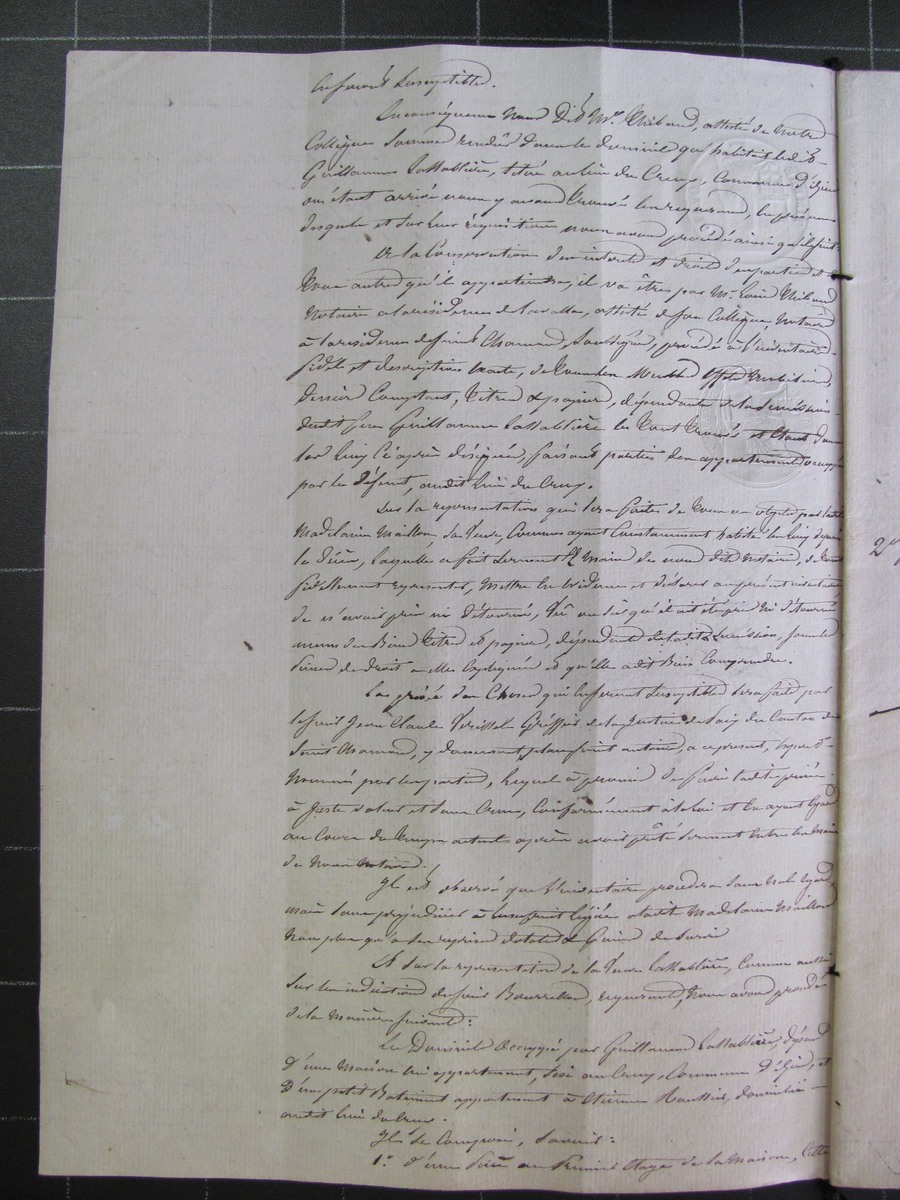 en seront susceptible.
En conséquence Nous Dit Mre Thibaud, assisté de notre
Collègue sommes rendus dans le domicile qu'habitait ledit
Guillaume Lassablière, situé au lieu du Creux, Commune d'Izieu
où étant arrivé nous y avons trouvés les requérans, en présence
desquels et sur leur réquisition nous avons procédé ainsi qu'il suit.
A la Conservation des interets et droits des parties et de
tous autres qu'il appartiendra, il va être par Mre Louis Thibaud
Notaire à la résidence de Lavalla, assisté de son Collègue, Notaire
à la résidence de Saint Chamond, soussigné, procédé à l'inventaire
fidèle et description exacte, de tous les Meubles Effets Mobiliers,
Denier Comptant, Titres & papiers, dépendants de la succession
dudit feu Guillaume Lassablière le tout trouvés et étant dans
les lieux ci après désignés, faisant parties des appartements occupés
par le défunt, audit lieu du Creux.
Sur la représentation qui sera faite de tous ces objets par ladite
Madelaine Maillon sa Veuve, Comme ayant Constamment habité les lieux depuis
le décès, laquelle a fait serment ès mains de nous dits Notaires, de tout
fidèlement représenter, mettre en évidence et déclarer au présent inventaire
de n'avoir pris ni détourné, vu ou su qu'il ait été pris ni détourné
aucuns des Biens Titres et papiers, dépendants de ladite succession, sous les
peines de droit à elle expliquées et qu'elle a dit Bien Comprendre.
La prisée des Choses qui en seront susceptibles sera faite par
le sieur Jean Claude Greffier de la Justice de Paix du Canton de
Saint Chamond, y demeurant, place Saint antoine, a ce present, expert
Nommé par les parties, lequel a promis de faire ladite prisée
à juste valeur et sans Crue, Conformément à la loi et en ayant égard
au Cours du temps actuel après avoir prêté serment entre les mains
de Nous notaires.
Il est observé que l'inventaire procédera sans nul égard
mais sans préjudicier à l'usufruit légué à ladite Madelaine Maillon
Non plus qu'à ses reprises dotales & Gains de Survie
Et sur la représentation de la Veuve Lassablière, Comme aussi
Sur les indications du sieur requérant, Nous avons procédé
de la manière suivante:
Le Domicile Occupé par Guillaume Lassablière, dépend
d'une Maison lui appartenant, sise au Creux, Commune d'Izieu, et
D'un petit Batiment appartenant à Etienne domicilié
audit lieu du Creux.
Il se Compose, Savoir:
1.° d'une pièce au Premier étage de la Maison, Cette